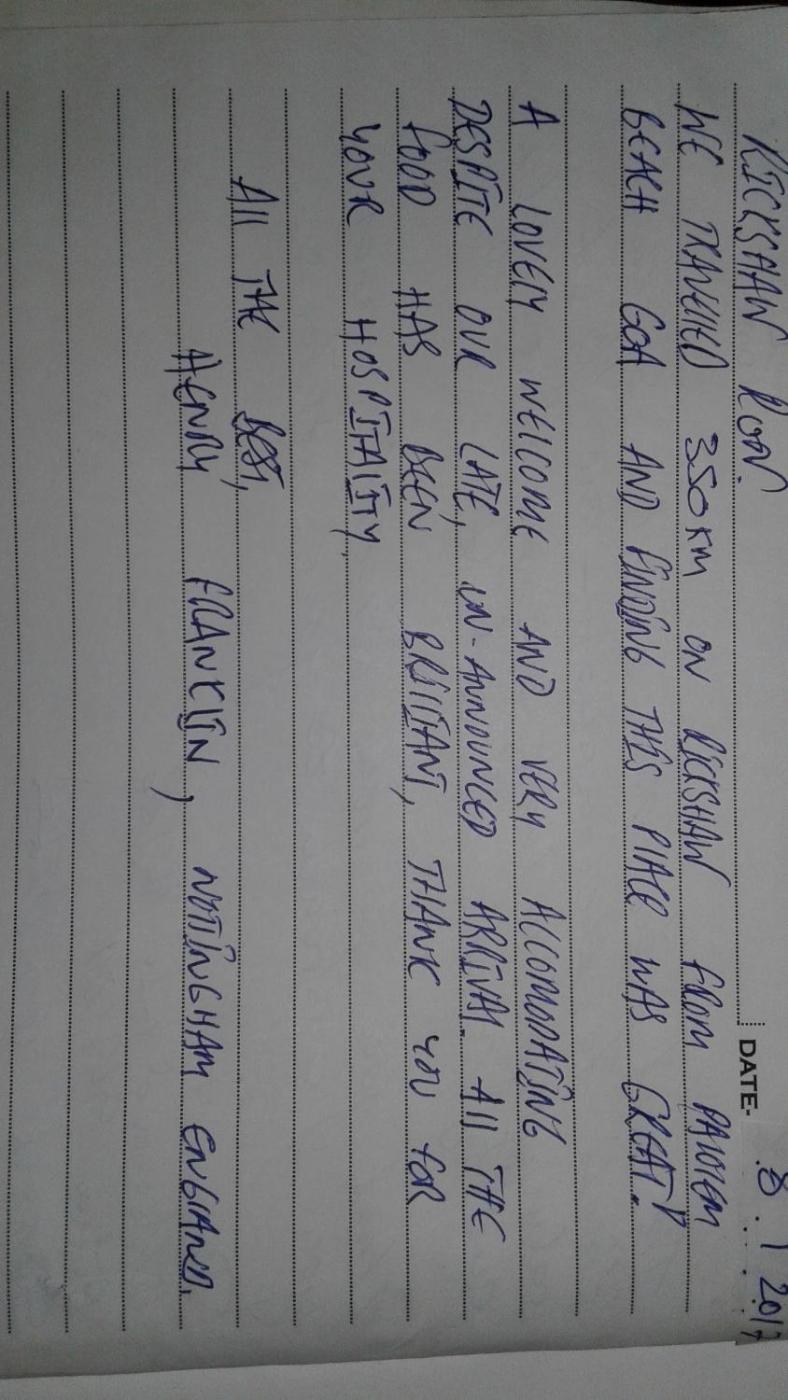 DATE- 8. 1 2017
RICKSHAW RUN.
WE TRAVELLED 350KM ON RICKSHAW FROM PALOLEM
BEACH GOA AND FINDING THIS PLACE WAS GREAT!
A LOVELY WELCOME AND VERY ACCOMODATING
DESPITE OUR LATE, UN-ANNOUNCED ARRIVAL. All THE
FOOD HAS BEEN BRILLIANT, THANK YOU FOR
YOUR HOSPITALITY.
All THE BEST,
HENRY FRANKLIN, NOTTINGHAM ENGLAND.